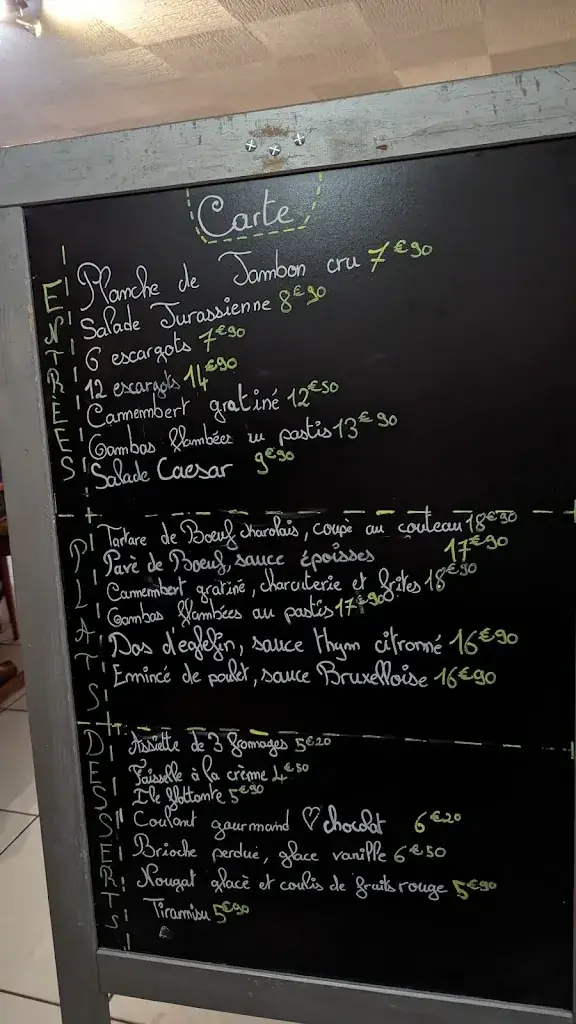 Carte
ENTRÉES
Planche de Jambon cru 7€90
Salade Jurassienne 8€90
6 escargots 7€90
12 escargots 14€90
Camembert gratiné 12€50
Gambas flambées au pastis 13€90
Salade Caesar 9€90
PLATS
Tartare de Boeuf charolais, coupé au couteau 18€90
Pavé de Boeuf, sauce époisses 17€90
Camembert gratiné, charcuterie et frites 18€90
Gambas flambées au pastis 17€90
Dos d'eglefin, sauce thym citronné 16€90
Emincé de poulet, sauce Bruxelloise 16€90
DESSERTS
Assiette de 3 fromages 5€20
Faisselle à la crème 4€50
Ile flottante 5€90
Coulant gourmand ♡ chocolat 6€20
Brioche perdue, glace vanille 6€50
Nougat glacé et coulis de fruits rouge 5€90
Tiramisu 5€90